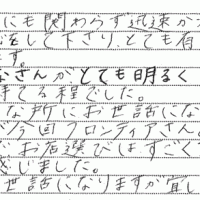 にも関わらず迅速か
をして下さり、とても有
す。
なさんがとても明るく
きてる程でした。
な所にお世話にな
今回フロンティアさん。
お店選びはすごく
感じました。
せ話になりますが宜し